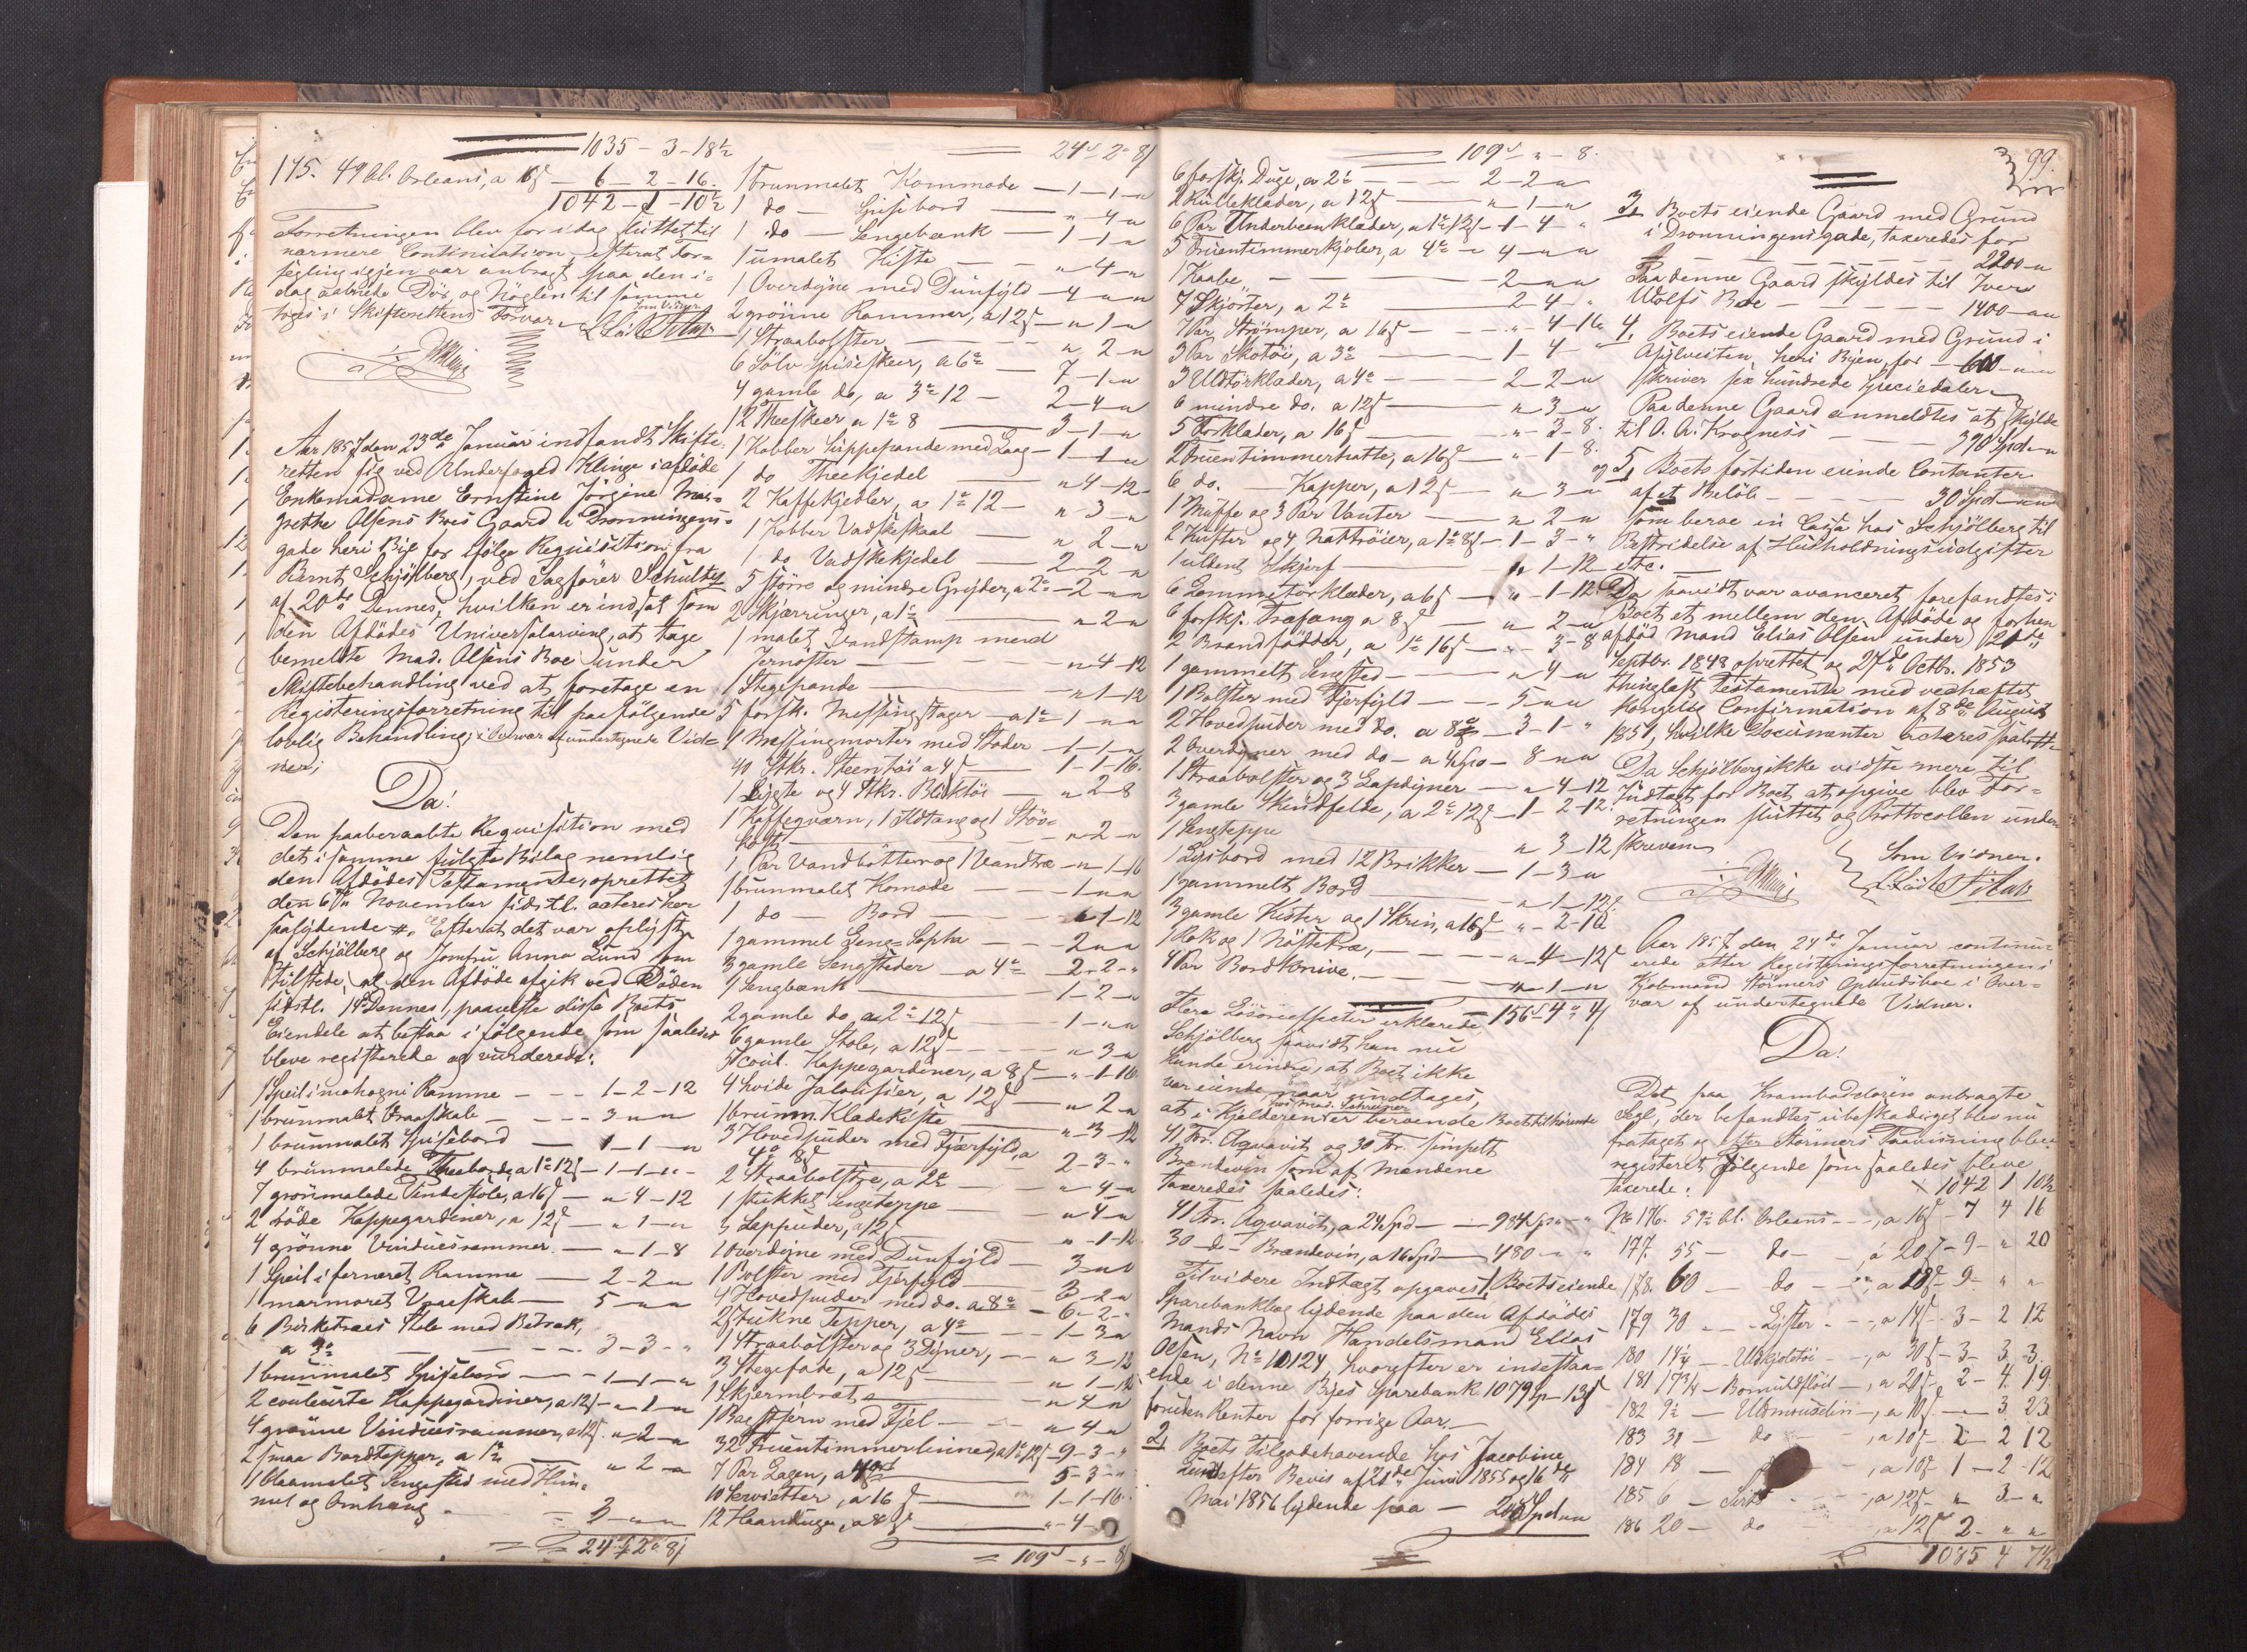 1035 - 3 - 18½
175. 49 Al. Orleans, a 16ß - 6 - 2 - 16.
1042 - 1 - 10½
Forretningen blev for idag sluttet til
nærmere Continuation, efterat For-
segling igjen var anbragt paa den i-
dag aabnede Dør, og Nøglen til samme
toges i Skifterettens Forvar.
Som Vidner
Aar 1857 den 23de Januar indfandt Skifte-
retten sig ved Underfoged Klinge i afdøde
Enkemadame Ernstine Jørgine Mar-
grethe Olsens Boes Gaard i Dronningens-
gade heri Bye for ifølge Requisition fra
Bernt Schjølberg, ved Sagfører Schultz
af 20de Dennes, hvilken er indsat som
den Afdødes Universalarving, at tage
bemeldte Mad. Olsens Boe under
Skiftebehandling ved at foretage en
Registeringsforretning til paafølgende
lovlig Behandling; i Overvær af undertegnede Vid-
ner;
Da!
Den paaberaabte Requisition med
det i samme fulgte Bilag nemlig
den Afdødes Testamente, oprettet
den 6te November sidstl. acteres her
saalydende #. Efterat det var oplyst
af Schjølberg og Jomfru Anna Lund som
tilstede, at den Afdøde afgik ved Døden
sidstl. 14 Dennes, paaviste disse Boets
Eiendele at bestaa i følgende som saaledes
bleve registerede og vurderede:
1 Speil i mahogni Ramme - - - 1-2-12
1 brunmalt Vraaskab - - - 3 - " - "
1 brunmalet Spisebord - 1-1-"
4 brunmalede Theeborde, a 1-12ß - 1-1-"
7 grønmalede Vindestole, a 16ß - " 4-12
2 røde Kappegardiner, a 12ß - " 1 - "
4 grønne Vinduesrammer - " - 1-8
1 Speil i ferneret Ramme - 2-2-"
1 marmoret Vraaskab - 5 - " - "
6 Birketræes Stole med Betræk,
a 3 - - - 3-3-"
1 brunmalet Spisebord - - 1-1-"
2 couleurte Kappegardiner, a 12ß - " 1 - "
4 grønne Vinduesrammer, a 12ß - " 2 - "
2 smaa Bordtepper, a 1 - " 2 - "
1 blaamalet Sengested med Him-
mel og Omhæng - 3 - " - "
24 - 2 - 8ß
24 - 2 - 8ß
1 brunmalet Kommode - 1-1-"
1 do - Spisebord - " 4 - "
1 do - Sengebænk - 1-1-"
1 umalet Kiste - - " 4 - "
1 Overdyne med Dunfyld - 4 - " - "
2 grønne Rammer, a 12ß - " 1 - "
1 Straabolster - - - " 2 - "
6 Sølv Spiseskeer, a 6 - 7-1-"
4 gamle do, a 3-12 - 2-4-"
12 Theeskeer a 1-8 - 3-1-"
1 Kobber Suppepande med Laag - 1-1-"
1 do Theekjedel - " 4-12-
2 Kaffekjedler, a 1-12 - " 3 - "
1 Kobber Vadskeskaal - " 2 - "
1 do Vadskekjedel - 2-2-"
5 større og mindre Gryder, a 2 - 2 - " - "
2 Skjærringer, a 1 - " 2 - "
1 malet Vandstamp med
Jernøster - - - " 4-12
1 Stegepande - " 1-12
5 forsk. Messingstager - a 1 - 1 - " - "
1 Messingmorter med Støder - 1-1-"
40 Stkr. Steentøi a 4ß - 1-1-16.
1 Lygte og 4 Stkr. Bliktøi - " 2-8
1 Kaffegværn, 1 Ildtang og 1 Støv-
kost - " 2 - "
1 Par Vandbøtter og 1 Vandtræ - " 1-16
1 brunmalet Komode - - 1 - " - "
1 do - Bord - - - 1-12
1 gammel Senge-Sopha - - 2 - " - "
3 gamle Sengsteder - a 4 - 2-2-"
1 Sengbænk - 1-2-"
2 gamle do, a 2-12ß - 1 - " - "
6 gamle Stole, a 12ß - " 3 - "
5 coul. Kappegardiner, a 8ß - " 1-16
4 hvide Jalousier, a 12ß - " 2 - "
1 brunm. Klædekiste - " - 3-12
3 Hovedpuder med Fjærfyld, a
4 8ß 2-3-"
2 Straabolstre, a 2 - - " 4 - "
1 stukket Sengeteppe - " 4 - "
3 Lappuder, a 12ß - " - 1-12
1 Overdyne med Dunfyld - 3 - " - "
1 Bolster med Fjærfyld - 3 - " - "
4 Hovedpuder med do. a 8 - 6-2-"
2 stukne Tepper, a 4 - - 1-3-"
1 Straabolster og 3 Dyner, - " 3-12
3 Stegefade, a 12ß - " 1-12
1 Skjærmbræt - " 4 - "
1 Bagstjern med Fjel - - " 4 - "
32 Fruentimmerlinned, a 1-12ß - 9-3-"
7 Par Lagen, a 4 5-3-"
10 Servietter, a 16ß - 1-1-16.
12 Haanduge, a 8ß - " - 4 -
109 - " - 8ß
109 - " - 8.
6 forskj. Duge, a 2 - - - 2-2-"
2 Rulleklæder, a 12ß - " 1 - "
6 Par Underbeenklæder, a 1-12ß - 1-4-"
5 Fruentimmerkjoler, a 4 - 4 - " - "
1 Kaabe - - 2 - " - "
7 Skjørter, a 2 - 2-4-"
7 Par Strømper, a 16ß - - - " - 4-16
3 Par Skotøi, a 3 - 1-4-"
3 Uldtørklæder, a 4 - - - 2-2-"
6 mindre do. a 12ß - " 3 - "
5 Forklæder, a 16ß - " - 3-8.
2 Fruentimmerhatte, a 16ß - " - 1-8.
6 do. - Kapper, a 12ß - " 3 - "
1 Muffe og 3 Par Vanter - " 2 - "
2 Kufter og 4 Nattrøier, a 1-8ß - 1-3-"
1 uldent Skjerf - " 1-12
6 Lommetørklæder, a 6ß - " - 1-12
6 forskj. Træfang a 8ß - " 2 - "
2 Brandfødder, a 1-16ß - " - 3-8
1 gammelt Sengsted - " 4 - "
1 Bolster med Fjerfyld - - 5 - " - "
2 Hovedpuder med do. a 8 - 3-1-"
2 Overdyner med do - a 4 Spd - 8 - " - "
1 Straabolster og 3 Lapdyner - " 4-12
3 gamle Skindfelde, a 2-12ß - 1-2-12.
1 Sengteppe " 3-12
1 Lysbord med 12 Brikker - 1-3-"
1 gammelt Bord - " 1-12.
3 gamle Kister og 1 Skrin, a 16ß " - 2-16
1 Rok og 1 Nøstetræ, - - - " 4-12ß
4 Par Bordknive, - - - " 1 - "
156 - 4 - 4ß
Flere Løsøreeffecter erklærede
Schjølberg saavidt han nu
kunde erindre, at Boet ikke
var eiende, naar undtages,
at i Kjælderen hos Mad. Schreiner er beroende Boet tilhørende
41 Tr. Aqvavit og 30 Tr. simpelt
Brændeviin som af Mændene
taxeredes saaledes:
41 Tr. Aqvavit, a 24 Spd - - 984 Sp - " - "
30 - do - Brændeviin, a 16 Spd - 480 - " "
Til videre Indtægt opgaves 1, Boets eiende
Sparebankbog lydende paa den Afdødes
Mands Navn Handelsmand Elias
Olsen, No 10124, hvorefter er indestaa-
ende i denne Byes Sparebank 1079 Sp - 13ß
foruden Renter for forrige Aar. -
2, Boets Tilgodehavende hos Jacobine
Lund efter Bevis af 21de Juni 1855 og 16de
Mai 1856 lydende paa - 200 Spd " "
99.
3, Boets eiende Gaard med Grund
i Dronningensgade, taxeredes for
2200 - "
Paa denne Gaard skyldes til Iver
Wolfs Boe - - - - 1400 - " "
4, Boets eiende Gaard med Grund i
Asylveiten, heri Byen, for - 600 - " - "
skriver sex hundrede Speciedaler.
Paa denne Gaard anmeldtes at skylde
til O. A. Krogness - - 390 Spd - "
og 5, Boets fortiden eiende Contanter
af et Beløb - - - - - 30 Spd - " "
som beroe in Cassa hos Schjølberg til
Bestridelse af Huusholdningsudgifter
etc. -
Da saavidt var avanceret forefandtes i
Boet et mellem den Afdøde og forhen
afdød Mand Elias Olsen under 21de
Septbr. 1848 oprettet og 27de Octbr. 1853
thinglæst Testamente med vedhæftet
kongelig Confirmation af 8de August
1851, hvilke Documenter acteres saal. #.
Da Schjølberg ikke vidste mere til
Indtægt for Boet at opgive blev For-
retningen sluttet og Prottocollen under-
skreven.
Som Vidner.
Aar 1857 den 24de Januar continu-
erede atter Registeringsforretningen i
Kjøbmand Størmers Opbudsboe i Over-
vær af undertegnede Vidner.
Da!
Det paa Kramboddøren anbragte
Segl, der befandtes ubeskadiget blev nu
frataget og efter Størmers Paaviisning blev
registeret følgende som saaledes bleve
taxerede:
1042 1 10½
No 176. 59½ Al. Orleans - - -, a 16ß - 7 4 16
177. 55 - do - , a 20ß - 9 - " 20
178. 60 - do - , a 18ß - 9 - " "
179 30 - - Lister - - -, a 14ß - 3 - 2 12
180 14¼ - Uldkjoletøi - -, a 30ß - 3 - 3 3.
181 17¾ - Bomuldfløil - , a 20ß - 2 - 4. 19
182 9½ - Uldmouselin - , a 10ß - " 3. 23
183 39 - do - , a 10ß - 2 - 2 12
184 18 - , a 10ß - 1 - 2 - 12
185 6 - Sirts - - , a 12ß - " 3 - "
186 20 - do , a 12ß 2 - " "
1085 4 7½